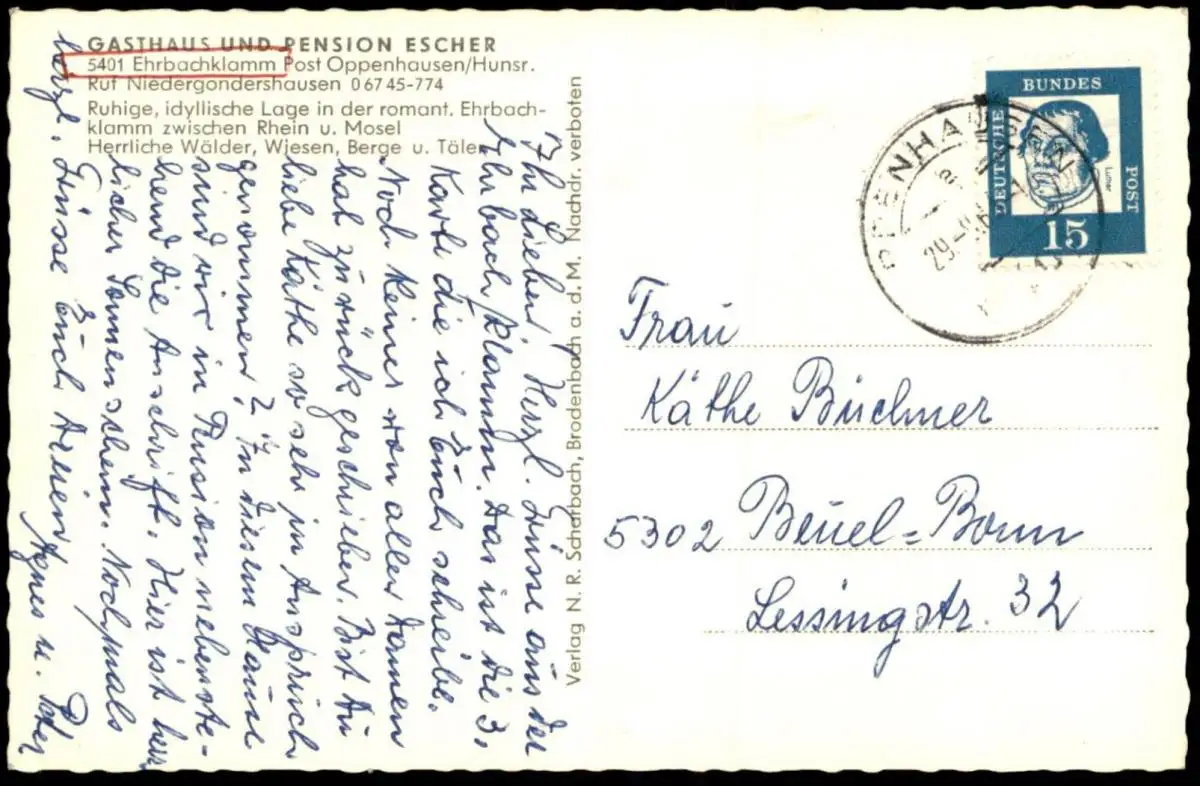 GASTHAUS UND PENSION ESCHER
5401 Ehrbachklamm Post Oppenhausen/Hunsr.
Ruf Niedergondershausen 0 67 45-774
Ruhige, idyllische Lage in der romant. Ehrbach-
klamm zwischen Rhein u. Mosel
Herrliche Wälder, Wiesen, Berge u. Täler
Ihr Lieben, Herzl. Grüsse aus der
Ehrbachklamm. Das ist die 3.
Karte die ich Euch schreibe.
Noch keiner von allen Damen
hat zurück geschrieben. Bist Du
liebe Käthe so sehr in Anspruch
genommen? In diesem Hause
sind wir in Pension nebenste-
hend die Anschrift. Hier ist herr
licher Sonnenschein. Nochmals
herzl. Grüsse Euch Allen
Agnes u. Peter
Verlag N. R. Scharbach, Brodenbach a. d. M. Nachdr. verboten
OPPENHAUSEN
29.
DEUTSCHE
BUNDES
POST
Luther
15
Frau
Käthe Büchner
5302 Beuel-Bonn
Lessingstr. 32